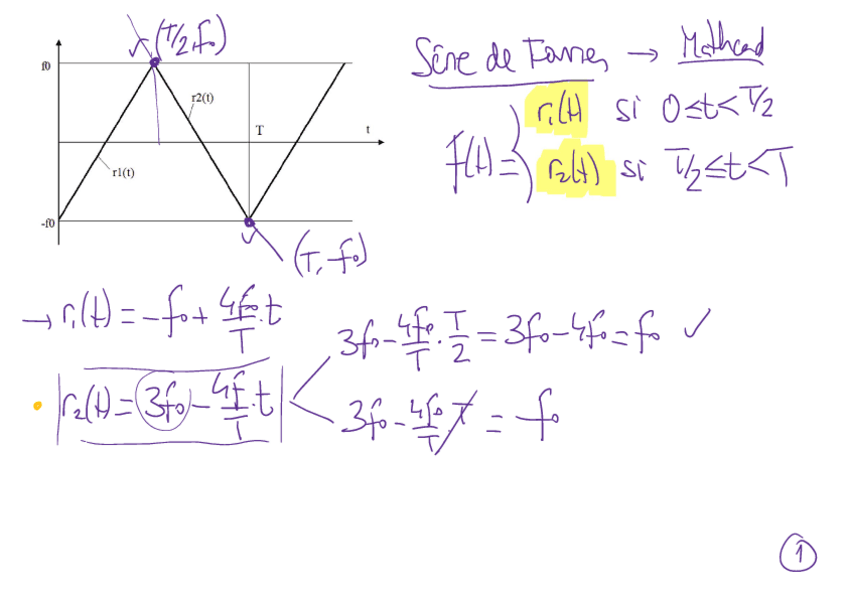 (T/2, f₀)
f0
r2(t)
T
t
r1(t)
-f0
(T, -f₀)
Série de Fourier → Mathcad
f(t) = { r₁(t) si 0 ≤ t < T/2
r₂(t) si T/2 ≤ t < T
→ r₁(t) = -f₀ + 4f₀/T · t
3f₀ - 4f₀/T · T/2 = 3f₀ - 4f₀ = f₀ ✓
• r₂(t) = 3f₀ - 4f/T · t
3f₀ - 4f₀/T · T = -f₀
1